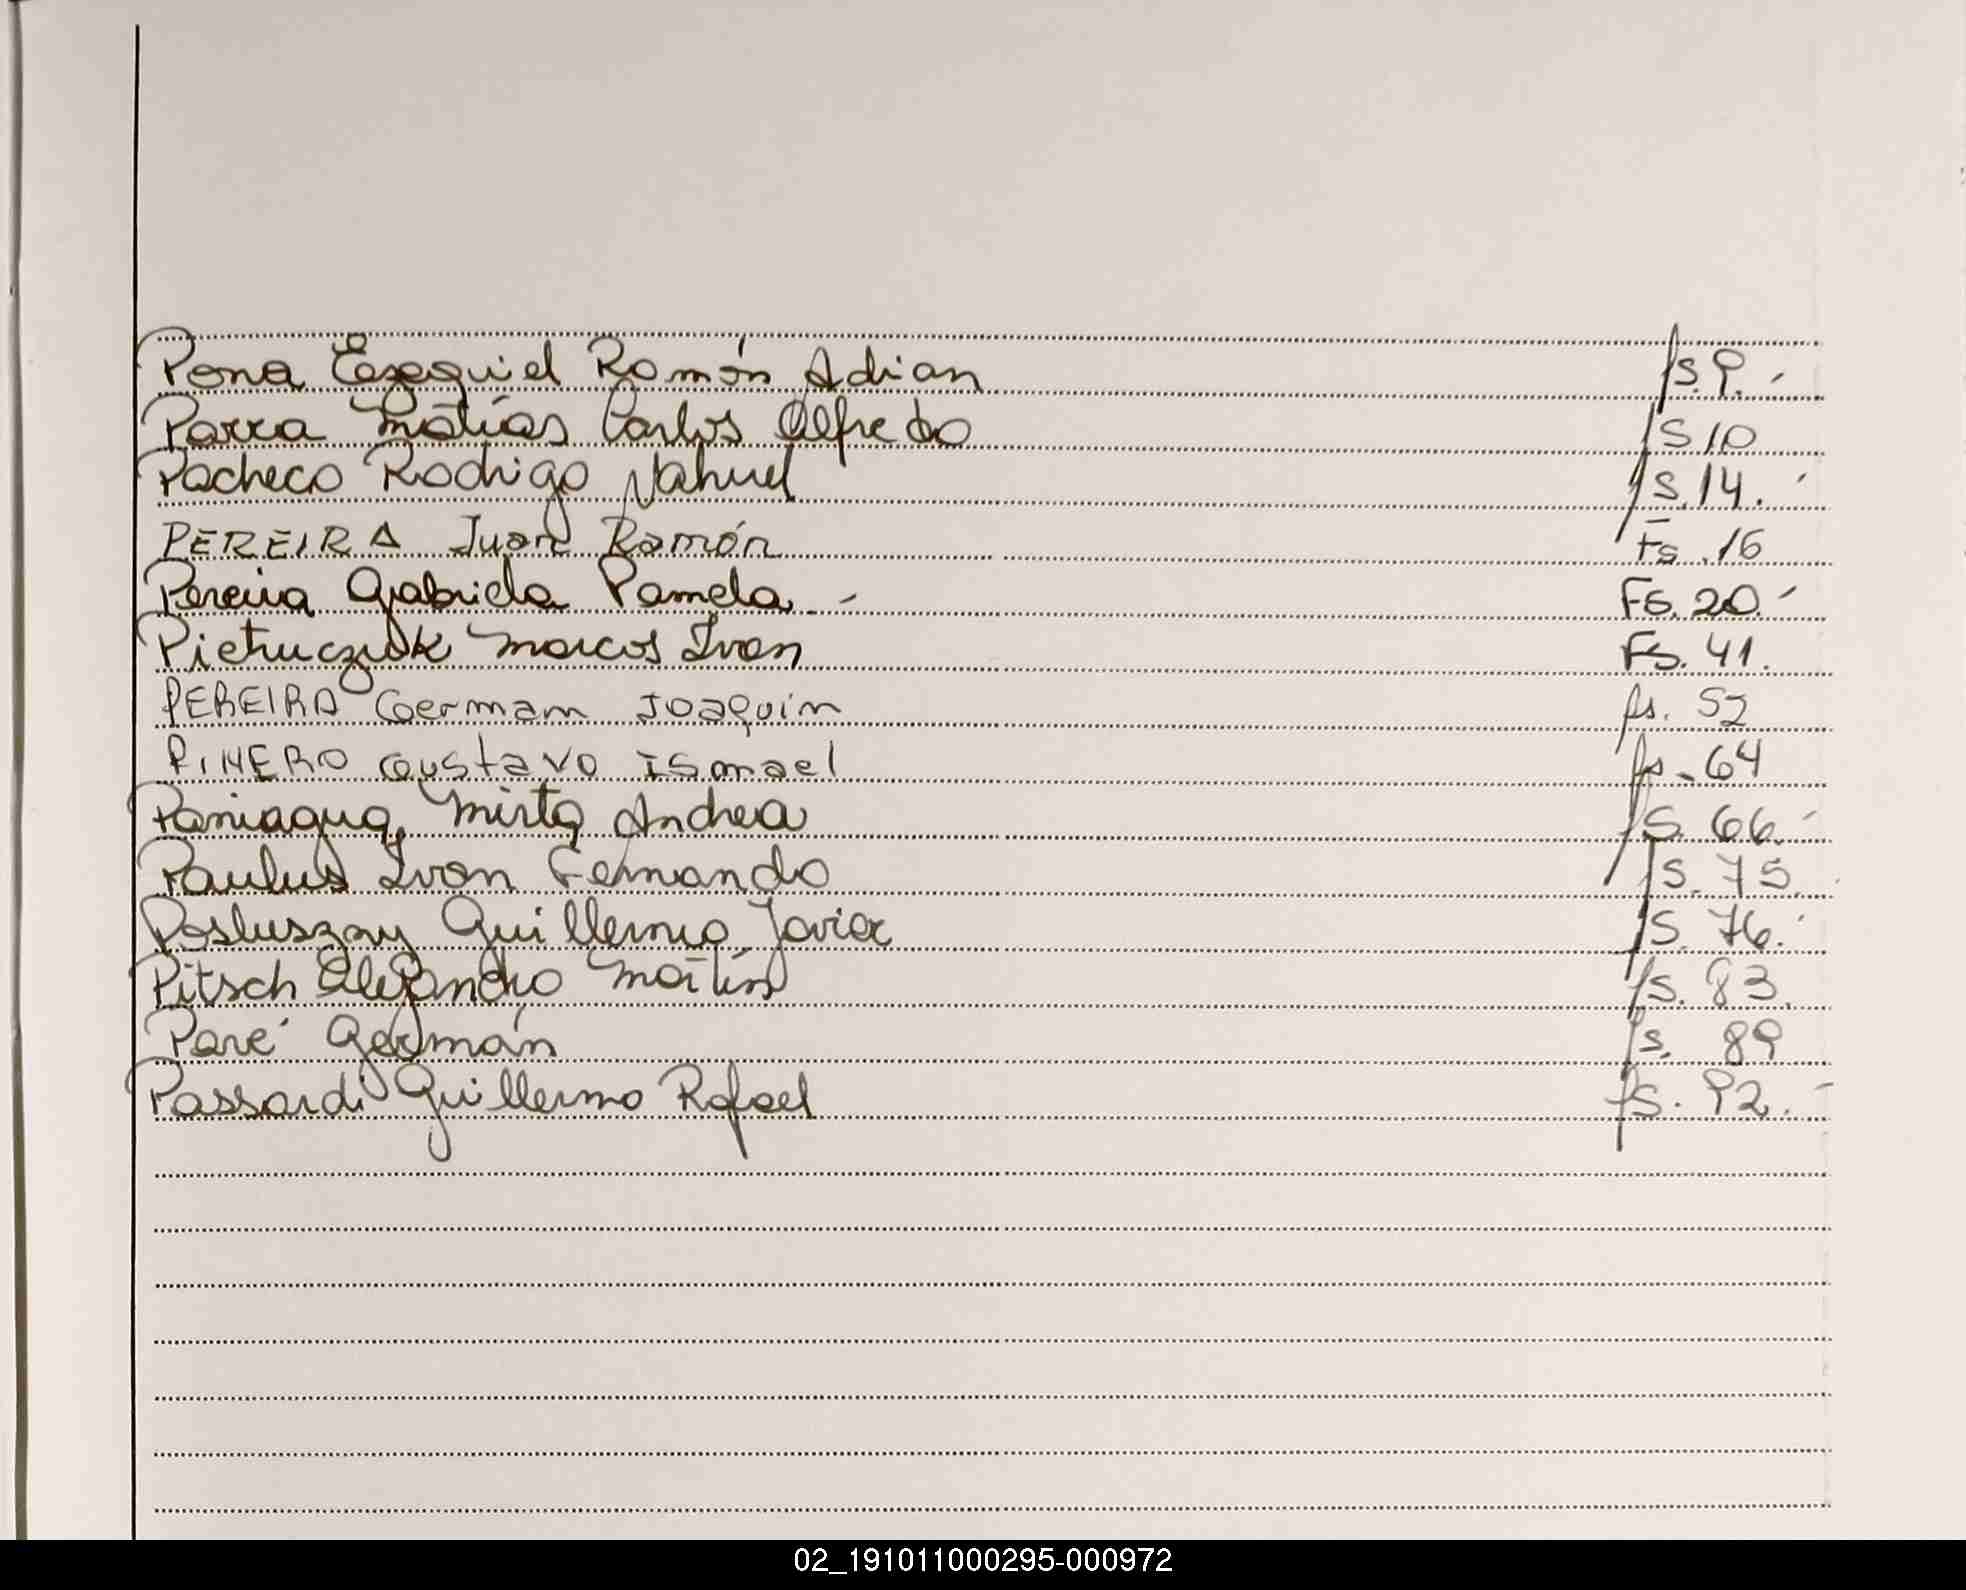 Pona Ezequiel Ramón Adrian fs. 9.-
Parra Matías Carlos Alfredo fs 10
Pacheco Rodrigo Nahuel fs. 14.-
PEREIRA Juan Ramón Fs. 16
Pereira Gabriela Pamela.- Fs. 20.-
Pietruczuk Marcos Ivan Fs. 41.
PEREIRA German Joaquin fs. 52
PIÑERO Gustavo Ismael fs. 64
Paniagua, Mirta Andrea fs. 66.-
Paulus Ivan Fernando fs. 75.
Posluszny Guillermo Javier fs. 76.-
Pitsch Alejandro Martín fs. 83.
Paré Germán fs. 89
Passardi Guillermo Rafael fs. 92.-
02_191011000295-000972